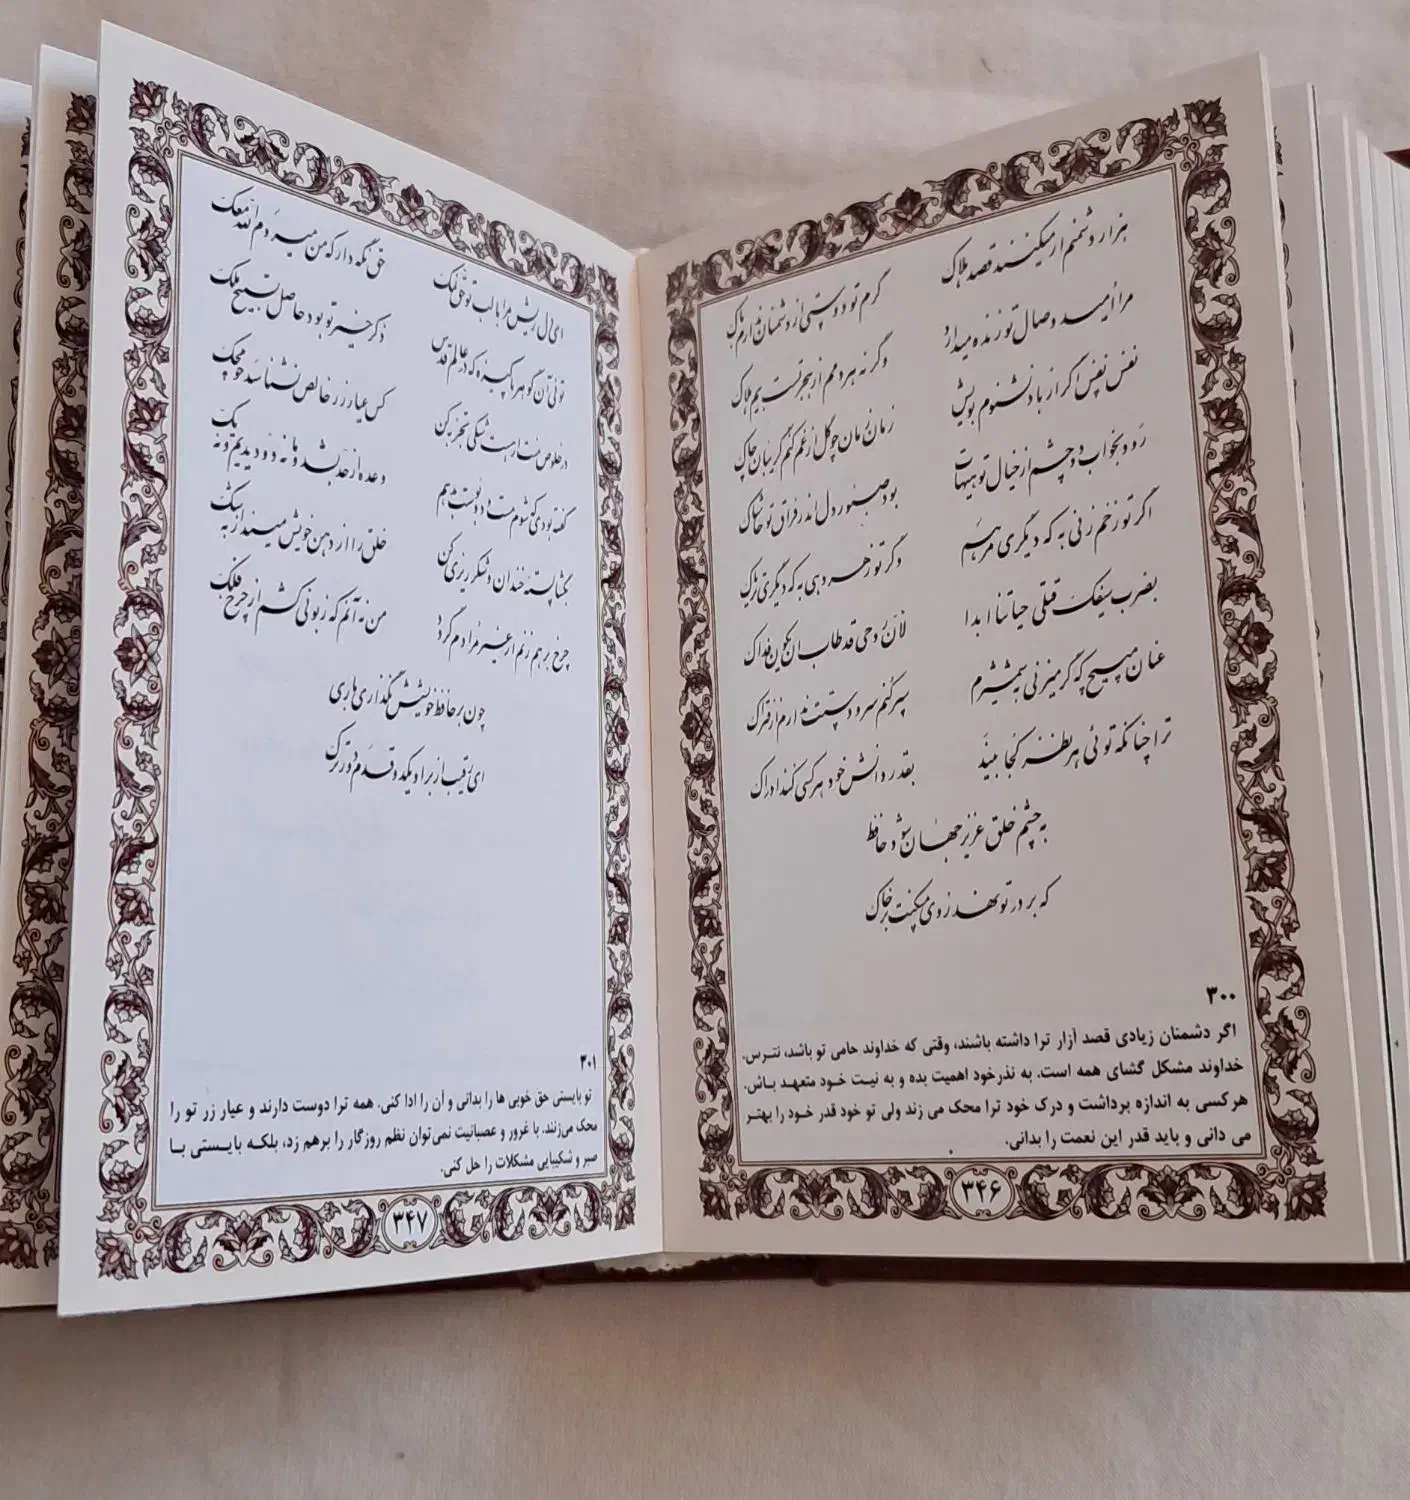 هزار دشمنم ار میکنند قصد هلاک
گرم تو دوستی از دشمنان ندارم باک
مرا امید وصال تو زنده میدارد
وگرنه هر دمم از هجر تست بیم هلاک
نفس نفس اگر از باد نشنوم بویش
زمان زمان چو گل از غم کنم گریبان چاک
رود بخواب دو چشم از خیال تو هیهات
بود صبور دل اندر فراق تو حاشاک
اگر تو زخم زنی به که دیگری مرهم
وگر تو زهر دهی به که دیگری تریاک
بضرب سیفک قتلی حیاتنا ابدا
لان روحی قد طاب ان یکون فداک
عنان مپیچ که گر میزنی بشمشیرم
سپر کنم سر و دستت ندارم از فتراک
ترا چنانکه توئی هر نظر کجا بیند
بقدر دانش خود هر کسی کند ادراک
به چشم خلق عزیز جهان شود حافظ
که بر در تو نهد روی مسکنت بر خاک
۳۰۰
اگر دشمنان زیادی قصد آزار ترا داشته باشند، وقتی که خداوند حامی تو باشد، نترس.
خداوند مشکل گشای همه است. به نذرخود اهمیت بده و به نیت خود متعهد باش.
هرکسی به اندازه برداشت و درک خود ترا محک می زند ولی تو خود قدر خود را بهتر
می دانی و باید قدر این نعمت را بدانی.
۳۴۶
ای دل ریش مرا با لب تو حق نمک
حق نگه دار که من میروم الله معک
توئی آن گوهر پاکیزه که در عالم قدس
ذکر خیر تو بود حاصل تسبیح ملک
در خلوص منت ار هست شکی تجربه کن
کس عیار زر خالص نشناسد چو محک
گفته بودی که شوم مست و دو بوست بدهم
وعده از حد بشد و ما نه دو دیدیم و نه یک
بگشا پسته خندان و شکر ریزی کن
خلق را از دهن خویش مینداز به شک
چرخ برهم زنم ار غیر مرادم گردد
من نه آنم که زبونی کشم از چرخ فلک
چون بر حافظ خویشش نگذاری باری
ای رقیب از بر او یکدو قدم دورترک
۳۰۱
تو بایستی حق خوبی ها را بدانی و آن را ادا کنی. همه ترا دوست دارند و عیار زر تو را
محک می‌زنند. با غرور و عصبانیت نمی‌توان نظم روزگار را برهم زد، بلکه بایستی با
صبر و شکیبایی مشکلات را حل کنی.
۳۴۷